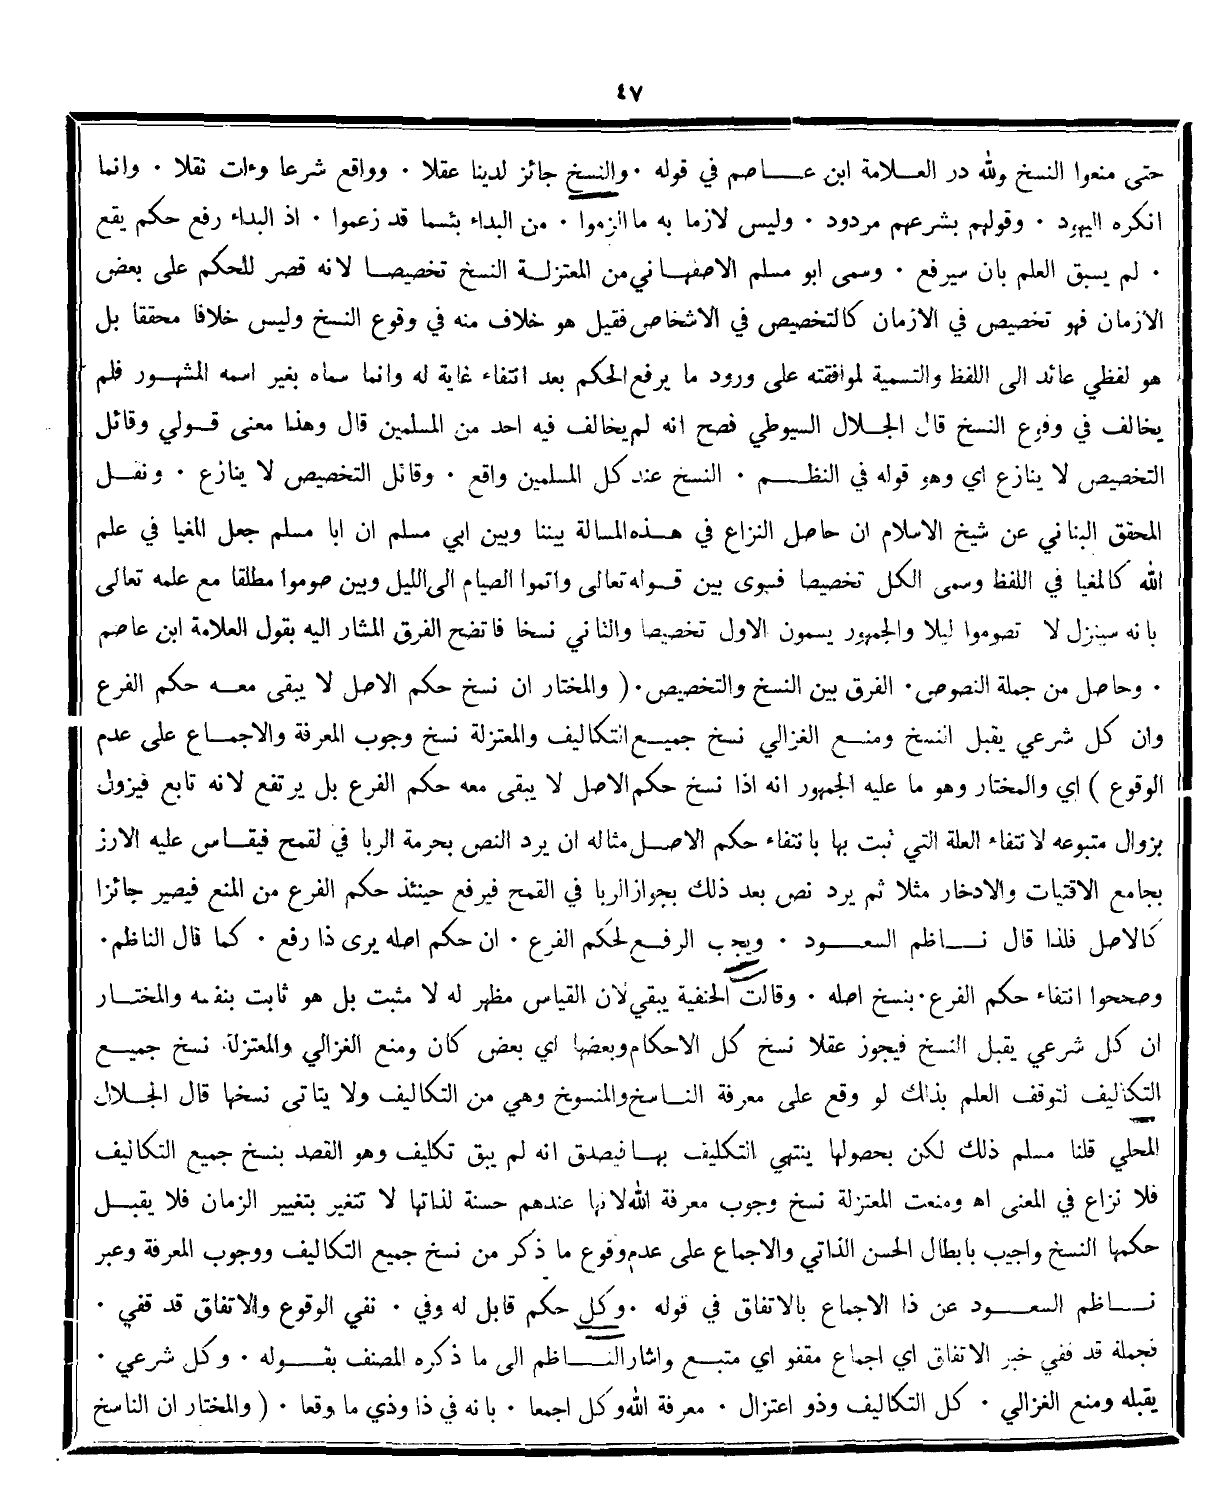 ٤٧
حتى منعوا النسخ ولله در العلامة ابن عاصم في قوله ٠ والنسخ جائز لدينا عقلا ٠ وواقع شرعا وءات نقلا ٠ وانما
انكره اليهود ٠ وقولهم بشرعهم مردود ٠ وليس لازما به ما الزموا ٠ من البداء بئسما قد زعموا ٠ اذ البداء رفع حكم يقع
٠ لم يسبق العلم بان سيرفع ٠ وسمى ابو مسلم الاصفهاني من المعتزلة النسخ تخصيصا لانه قصر للحكم على بعض
الازمان فهو تخصيص في الازمان كالتخصيص في الاشخاص فقيل هو خلاف منه في وقوع النسخ وليس خلافا محققا بل
هو لفظي عائد الى اللفظ والتسمية لموافقته على ورود ما يرفع الحكم بعد انتفاء غاية له وانما سماه بغير اسمه المشهور فلم
يخالف في وقوع النسخ قال الجلال السيوطي فصح انه لم يخالف فيه احد من المسلمين قال وهذا معنى قولي وقائل
التخصيص لا ينازع اي وهو قوله في النظم ٠ النسخ عند كل المسلمين واقع ٠ وقائل التخصيص لا ينازع ٠ ونقل
المحقق البناني عن شيخ الاسلام ان حاصل النزاع في هذه المسالة بيننا وبين ابي مسلم ان ابا مسلم جعل المغيا في علم
الله كالمغيا في اللفظ وسمى الكل تخصيصا فسوى بين قوله تعالى واتموا الصيام الى الليل وبين صوموا مطلقا مع علمه تعالى
بانه سينزل لا تصوموا ليلا والجمهور يسمون الاول تخصيصا والثاني نسخا فاتضح الفرق المشار اليه بقول العلامة ابن عاصم
٠ وحاصل من جملة النصوص ٠ الفرق بين النسخ والتخصيص ٠ ( والمختار ان نسخ حكم الاصل لا يبقى معه حكم الفرع
وان كل شرعي يقبل النسخ ومنع الغزالي نسخ جميع التكاليف والمعتزلة نسخ وجوب المعرفة والاجماع على عدم
الوقوع ) اي والمختار وهو ما عليه الجمهور انه اذا نسخ حكم الاصل لا يبقى معه حكم الفرع بل يرتفع لانه تابع فيزول
بزوال متبوعه لانتفاء العلة التي ثبت بها بانتفاء حكم الاصل مثاله ان يرد النص بحرمة الربا في لقمح فيقاس عليه الارز
بجامع الاقتيات والادخار مثلا ثم يرد نص بعد ذلك بجواز الربا في القمح فيرفع حينئذ حكم الفرع من المنع فيصير جائزا
كالاصل فلذا قال ناظم السعود ٠ ويجب الرفع لحكم الفرع ٠ ان حكم اصله يرى ذا رفع ٠ كما قال الناظم ٠
وصححوا انتفاء حكم الفرع ٠ بنسخ اصله ٠ وقالت الحنفية يبقى لان القياس مظهر له لا مثبت بل هو ثابت بنفسه والمختار
ان كل شرعي يقبل النسخ فيجوز عقلا نسخ كل الاحكام وبعضها اي بعض كان ومنع الغزالي والمعتزلة نسخ جميع
التكاليف لتوقف العلم بذلك لو وقع على معرفة الناسخ والمنسوخ وهي من التكاليف ولا يتاتى نسخها قال الجلال
المحلي قلنا مسلم ذلك لكن بحصولها ينتهي التكليف بها فيصدق انه لم يبق تكليف وهو القصد بنسخ جميع التكاليف
فلا نزاع في المعنى اه ومنعت المعتزلة نسخ وجوب معرفة الله لانها عندهم حسنة لذاتها لا تتغير بتغيير الزمان فلا يقبل
حكمها النسخ واجيب بابطال الحسن الذاتي والاجماع على عدم وقوع ما ذكر من نسخ جميع التكاليف ووجوب المعرفة وعبر
ناظم السعود عن ذا الاجماع بالاتفاق في قوله ٠ وكل حكم قابل له وفي ٠ نفي الوقوع والاتفاق قد قفي ٠
فجملة قد قفي خبر الاتفاق اي اجماع مقفو اي متبع واشار الناظم الى ما ذكره المصنف بقوله ٠ وكل شرعي ٠
يقبله ومنع الغزالي ٠ كل التكاليف وذو اعتزال ٠ معرفة الله وكل اجمعا ٠ بانه في ذا وذي ما وقعا ٠ ( والمختار ان الناسخ